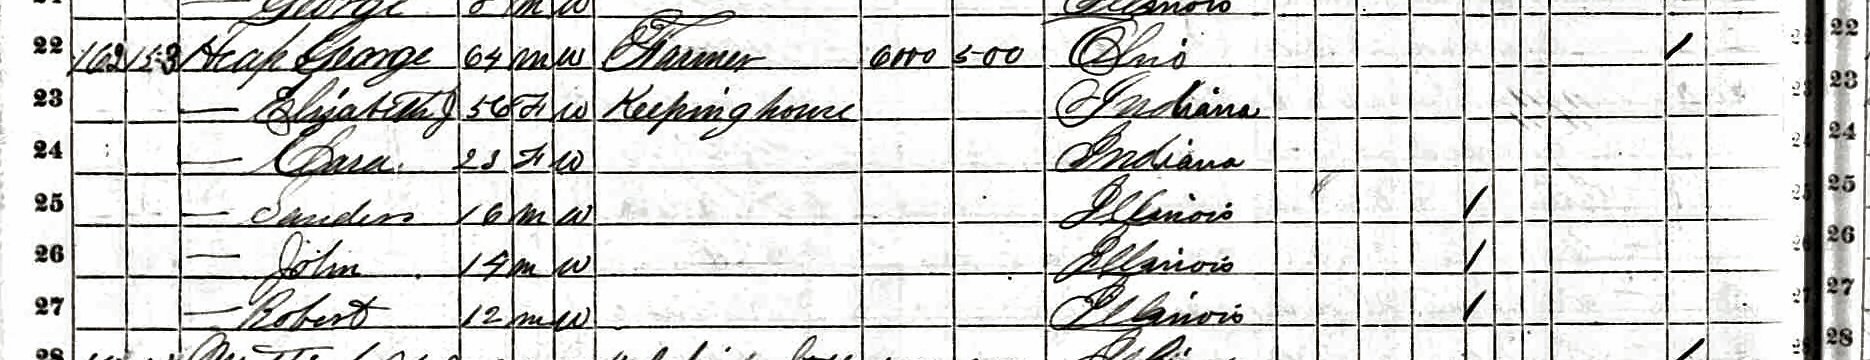 George 8 m W Illinois
22 162 153 Heap George 64 m W Farmer 6000 500 Ohio / 22
23 — Elizabeth J 56 F W Keeping house Indiana 23
24 — Clara 23 F W Indiana 24
25 — Sanders 16 m W Illinois / 25
26 — John 14 m W Illinois / 26
27 — Robert 12 m W Illinois / 27
28 28